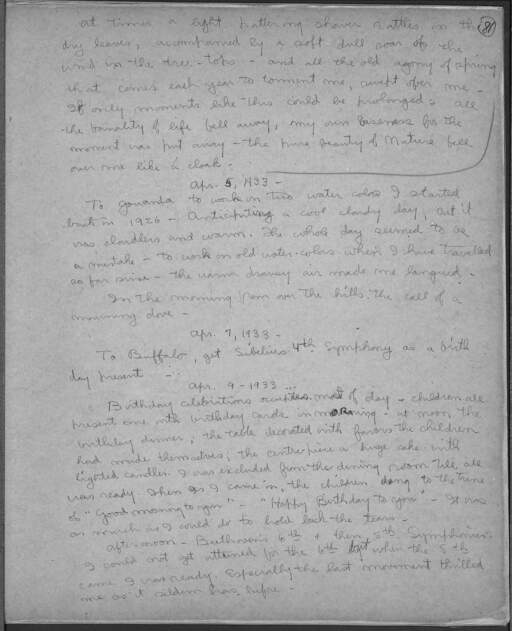 81
At times a light pattering shower rattles in the
dry leaves, accompanied by a soft dull roar of the
wind in the tree-tops - and all the old agony of spring
that comes each year to torment me, swept over me -
If only moments like this could be prolonged - all
the banality of life fell away, my own baseness for the
moment was put away - the pure beauty of Nature fell
over me like a cloak -
Apr. 5, 1933 -
To Gowanda to work on two water colors I started
back in 1926 - Anticipating a cool cloudy day, but it
was cloudless and warm. The whole day seemed to be
a mistake - to work on old water-colors when I have travelled
so far since - the warm drowsy air made me languid -
In the morning from over the hills, the call of a
mourning dove -
Apr. 7, 1933 -
To Buffalo, get Sibelius 4th Symphony as a birth
day present -
Apr. 9 - 1933 -
Birthday celebrations most of day - children all
present me with birthday cards in morning - at noon the
birthday dinner, the table decorated with favors the children
had made themselves, the centerpiece a huge cake with
lighted candles. I was excluded from the dining room till all
was ready. When I came in, the children sang to the tune
of "Good morning to you" - "Happy Birthday to you" - It was
as much as I could do to hold back the tears -
Afternoon - Beethoven's 6th & then 5th Symphonies.
I could not get attuned for the 6th but when the 5th
came I was ready. Especially the last movement thrilled
me as it seldom has before -